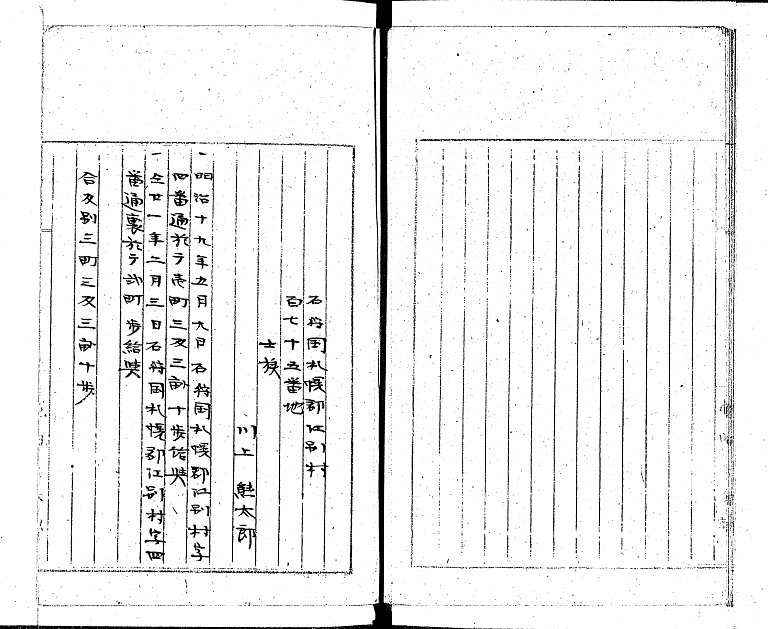 石狩国札幌郡江別村
百七十五番地
士族
川上熊太郎
一明治十九年五月九日石狩国札幌郡江別村字
四番通於テ壱町三反三畝十歩給与
一仝廿一年二月三日石狩国札幌郡江別村字四
番通裏於テ弐町歩給与
合反別三町三反三畝十歩